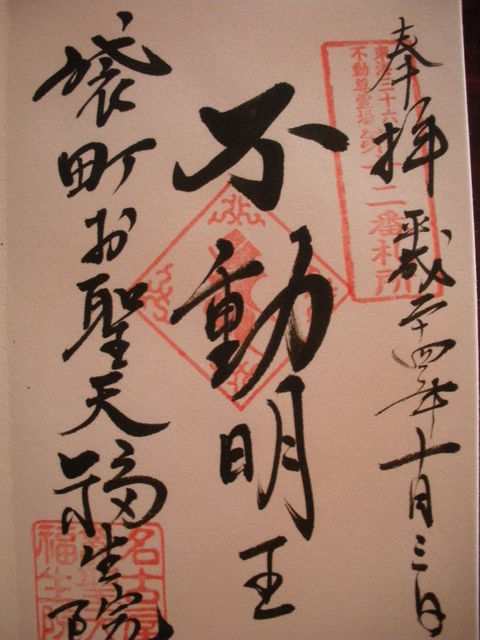 奉拝 平成二十四年十月三日
不動明王
袋町お聖天 福生院
東海三十六
不動尊霊場
十二番札所
名古屋
福生院